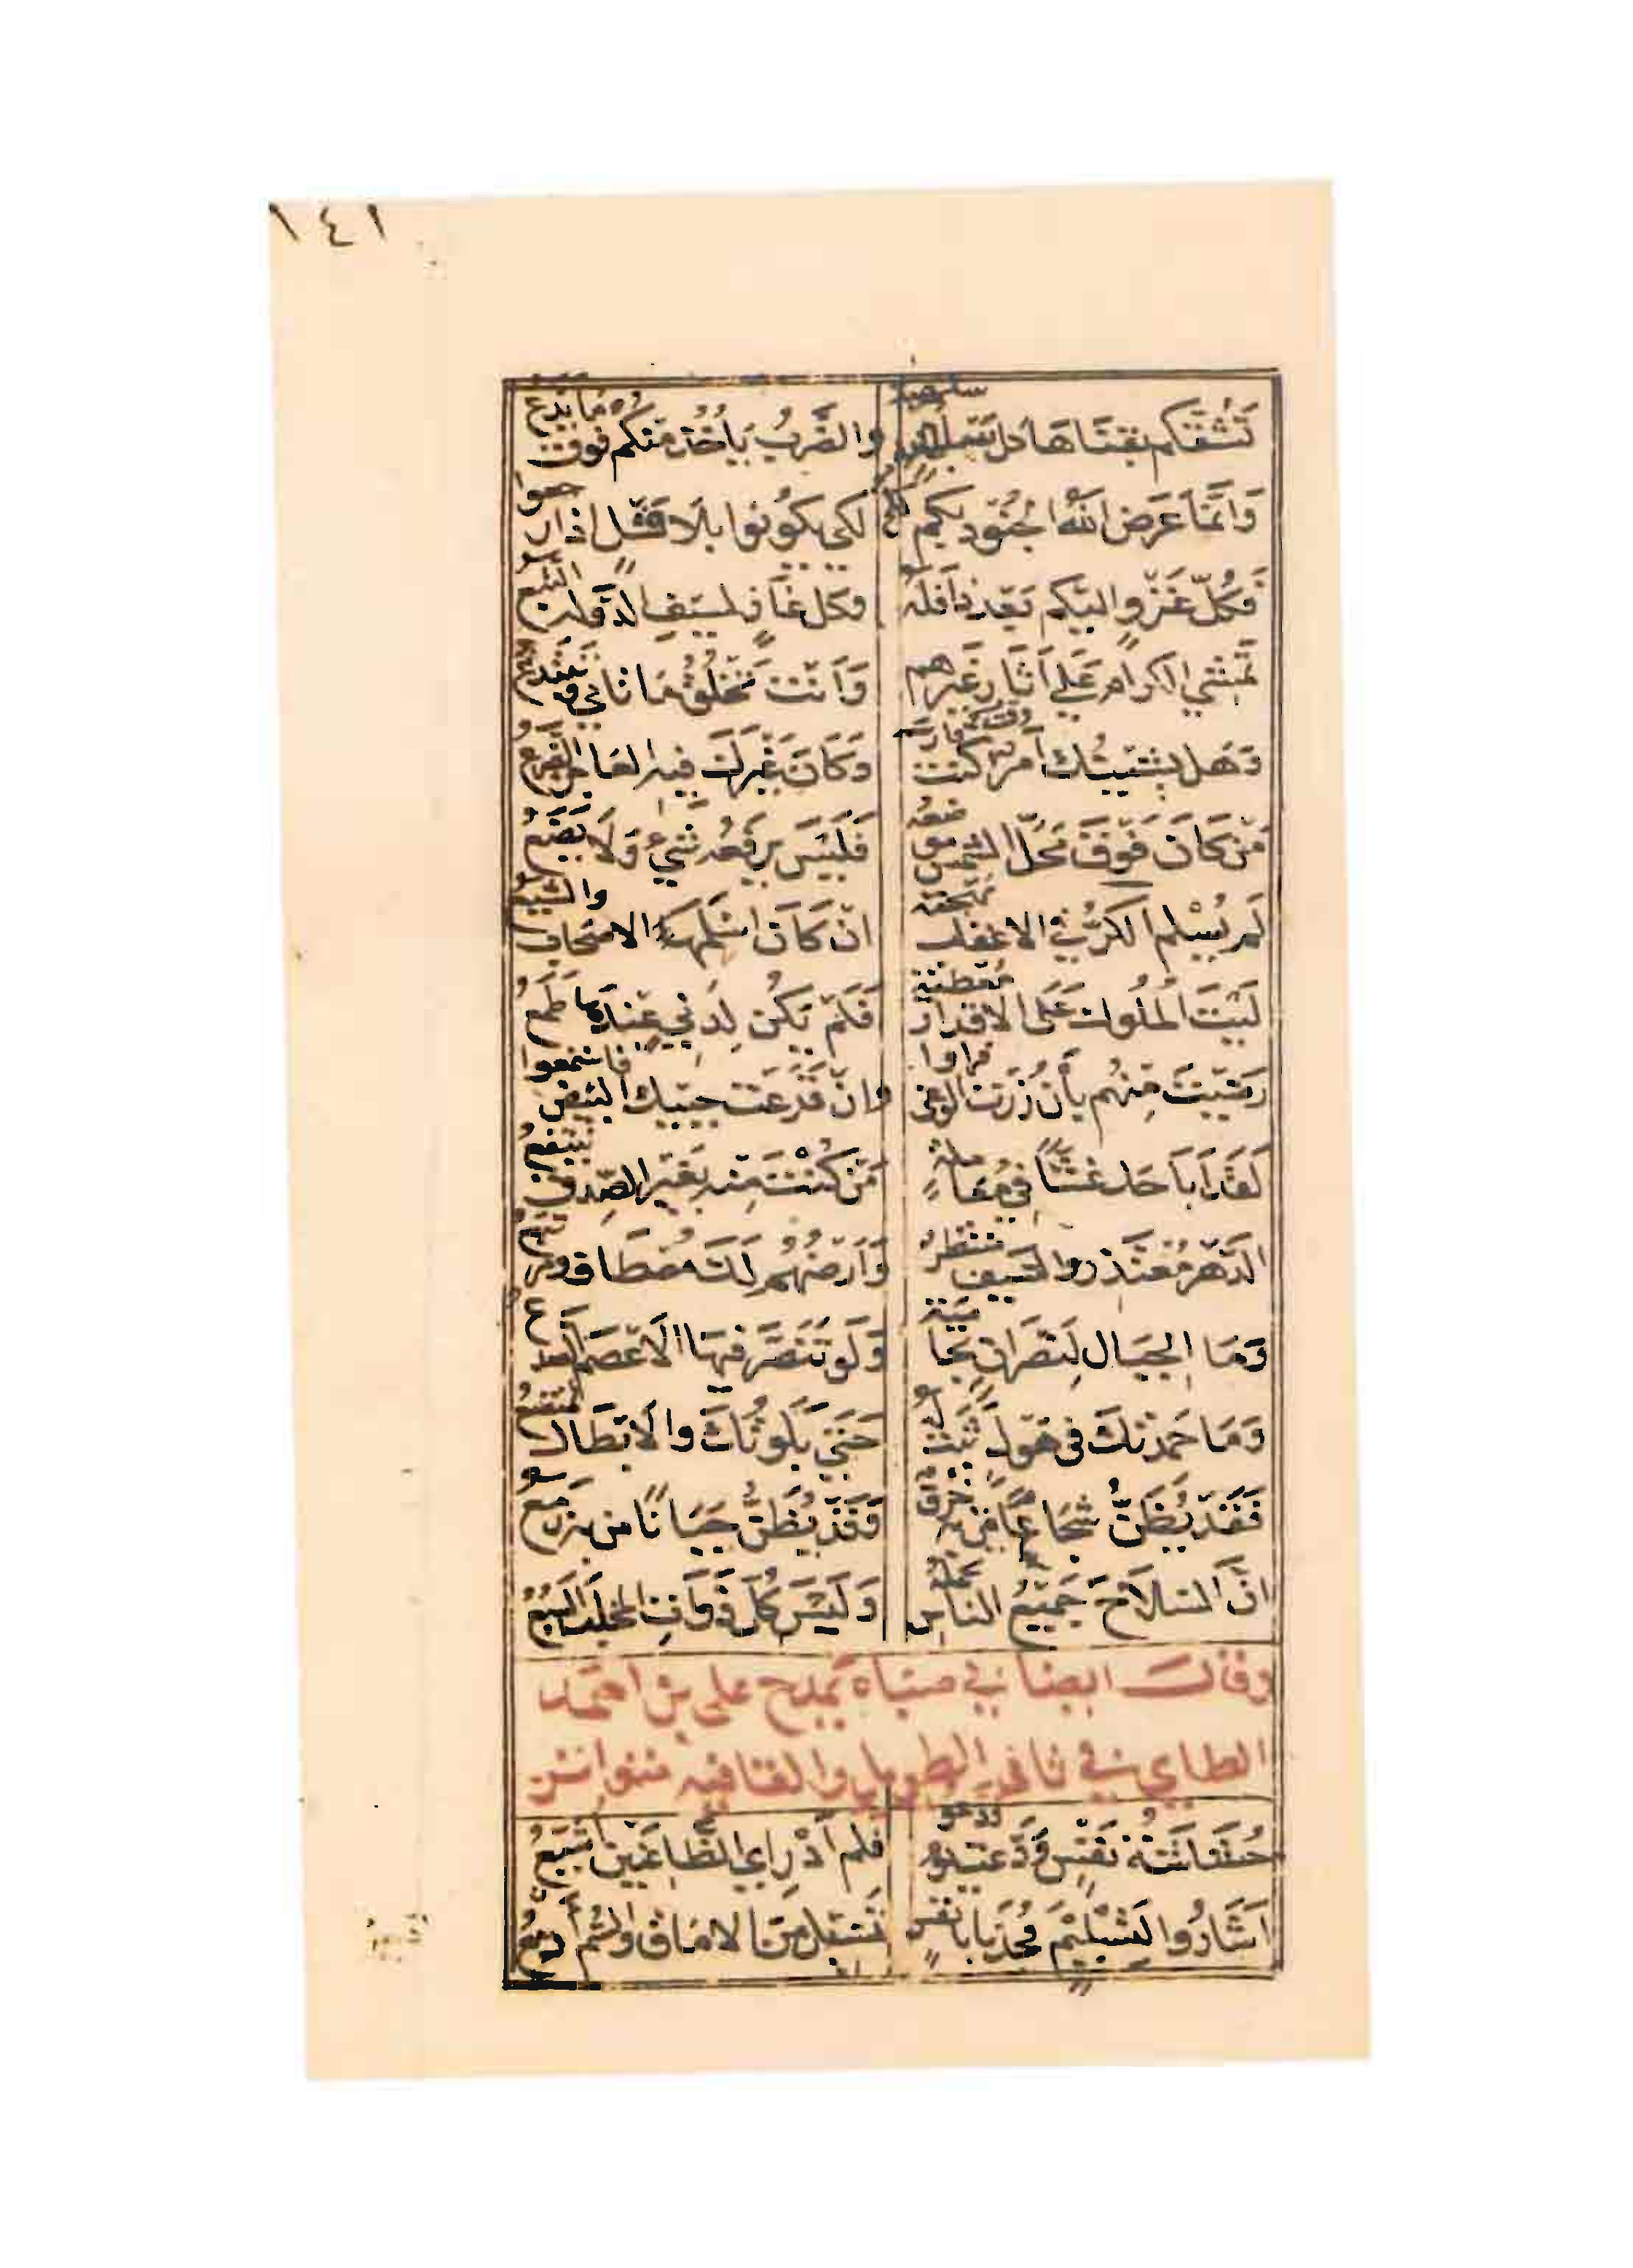 ١٤١
تَشُقُّكُم بقَنَاهَا كل سَلهبةٍ والضَّربُ يَأخُذُ منكم فوق ما يَدَعُ
وَانَّمَا عَرَّضَ اللّٰهُ الجُنُودَ بكم لكي يكُونوا بلَا فَسْلٍ اذا رجعوا
فَكُلُّ غَزْوٍ اليكم بَعْدَ ذا فَلَهُ وكل غَازٍ لسَيف الدَّولة التَّبَعُ
تمشي الكرام عَلى آثَارِ غَيرِهم وَأنت تَخْلُقُ مَا تَأتي وَتبتدعُ
وَهَل يشينُك وقتٌ كنت فارسَه وَكَانَ غَيرَكَ فيه العَاجزُ الضَّرَعُ
مَن كَانَ فَوقَ مَحَلِّ الشمس موضعه فَلَيسَ يرفَعُه شَيءٌ وَلَا يَضَعُ
لَم يُسْلِم الكرُّ في الاعقاب مهجته ان كَانَ اسْلَمَهَا الاصحاب والشيعُ
لَيتَ المُلُوكَ عَلَى الاقدار مُعطيةٌ فَلَم يَكُن لِدَنيٍّ عِندَها طَمَعُ
رَضِيتَ مِنْهُم بأن زُرْتَ الوغى فراوا وان قَرَعْتَ حبيك البيض فاستمعوا
لَقَد أباحَك غِشًّا في مُعَاملةٍ مَن كُنْتَ مِنه بغَير الصِّدق تنتفعُ
الدَّهْرُ مُعْتَذرٌ والسَّيف منتظرٌ وَأرضُهُم لَكَ مُصْطَافٌ ومرتبعُ
وَمَا الجبَال لِنَصرَانٍ بحاميةٍ وَلَو تَنَصَّر فيهَا الأَعصَم الصدعُ
وَمَا حَمِدتُكَ في هَولٍ ثَبَتَّ له حَتَّى بَلَوتُكَ والأبطَال تمتصعُ
فَقَد يُظَنُّ شجَاعًا مَن به خَرَقٌ وَقَد يُظَنُّ جَبَانًا من به زمَعُ
انَّ السلَاحَ جَمِيعُ الناسِ تحمله وَلَيسَ كُلَّ ذَوَاتِ المخلب السَّبُعُ
وقال ايضا في صباه يمدح على بن احمد
الطايي في ثاني الطويل والقافيه متواتر
حُشَاشَةُ نَفْسٍ وَدَّعَت يوم ودعوا فلم أدْرِ اي الظَّاعنَين أُشَيِّعُ
اشَارُوا بتَسْلِيمٍ فجُدنا بانفسٍ تَسيل من الامَاقِ والسُّمُ ادمعُ